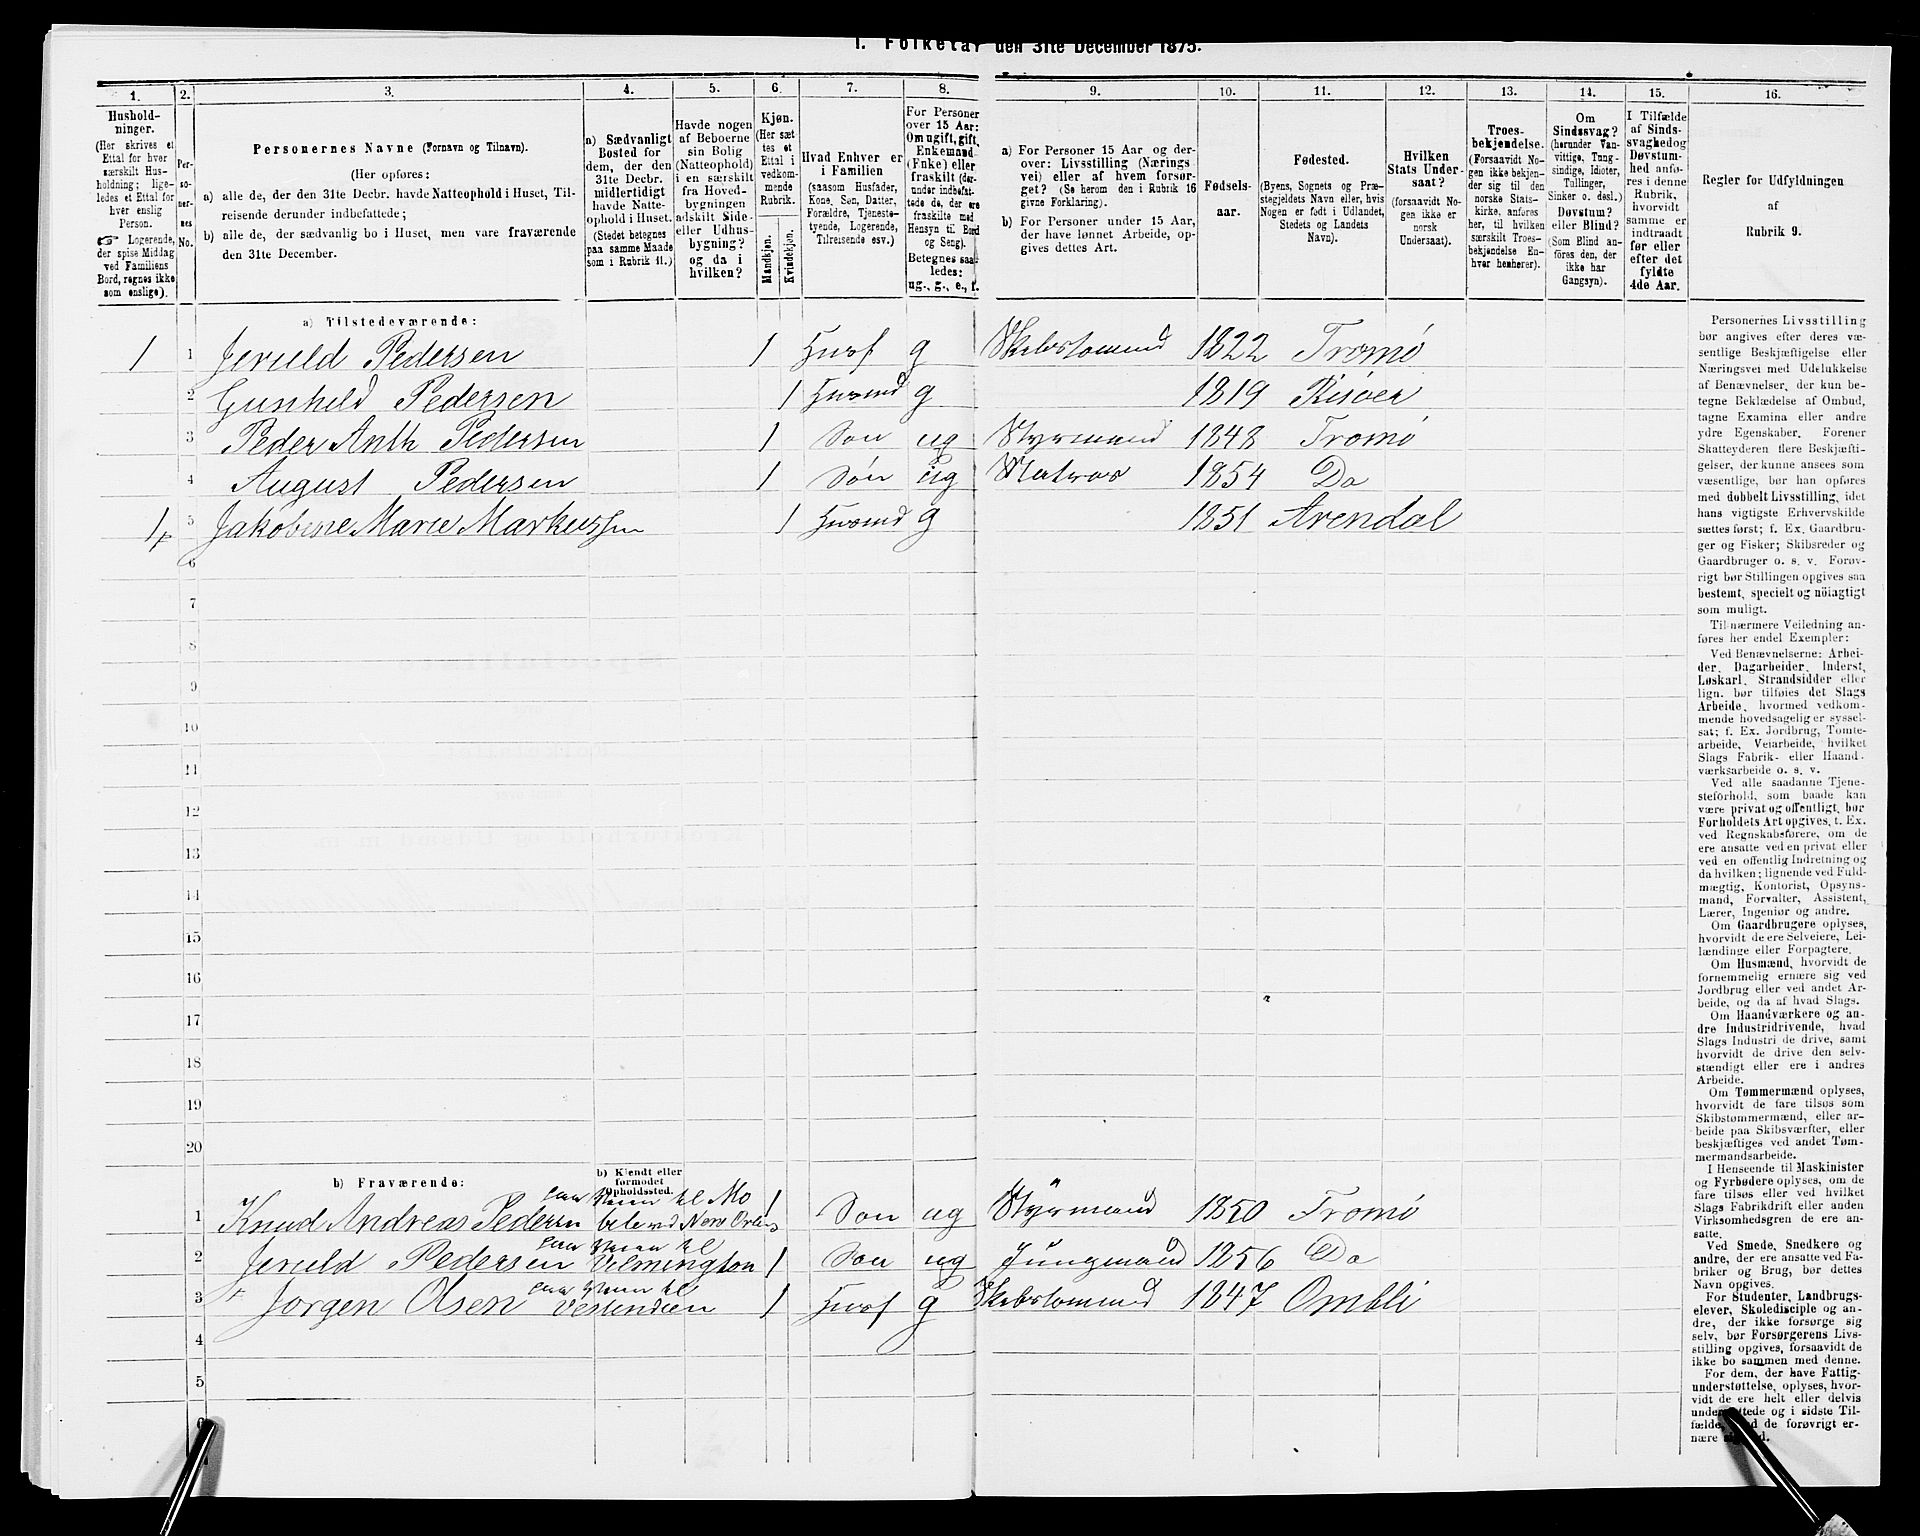 I. Folketal den 31te December 1875.
1. 2. 3. 4. 5. 6. 7. 8. 9. 10. 11. 12. 13. 14. 15. 16.
Hushold-
ninger.
(Her skrives et
Ettal for hver
særskilt Hus-
holdning; lige-
ledes et Ettal for
hver enslig
Person.
☞ Logerende,
der spise Middag
ved Familiens
Bord, regnes ikke
som enslige).
Per-
so-
ner-
nes
No.
Personernes Navne (Fornavn og Tilnavn).
(Her opføres:
a) alle de, der den 31te Decbr. havde Natteophold i Huset, Til-
reisende derunder indbefattede;
b) alle de, der sædvanlig bo i Huset, men vare fraværende
den 31te December.
a) Sædvanligt
Bosted for
dem, der den
31te Decbr.
midlertidigt
havde Natte-
ophold i Huset.
(Stedet betegnes
paa samme Maade
som i Rubrik 11.)
Havde nogen
af Beboerne
sin Bolig
(Natteophold)
i en særskilt
fra Hoved-
bygningen
adskilt Side-
eller Udhus-
bygning?
og da i
hvilken?
Kjøn.
(Her sæt
tes et
Ettal i
vedkom-
mende
Rubrik.
Mandkjøn.
Kvindekjøn.
Hvad Enhver er
i Familien
(saasom Husfader,
Kone, Søn, Datter,
Forældre, Tjeneste-
tyende, Logerende,
Tilreisende osv.)
For Personer
over 15 Aar:
Om ugift, gift,
Enkemand
(Enke) eller
fraskilt (der-
under indbefat-
tede de, der ere
fraskilte med
Hensyn til Bord
og Seng).
Betegnes saa-
ledes:
ug., g., e., f.
a) For Personer 15 Aar og der-
over: Livsstilling (Nærings
vei) eller af hvem forsør-
get? (Se herom den i Rubrik 16
givne Forklaring).
b) For Personer under 15 Aar,
der have lønnet Arbeide, op-
gives dettes Art.
Fødsels-
aar.
Fødested.
(Byens, Sognets og Præ-
stegjeldets Navn eller, hvis
Nogen er født i Udlandet,
Stedets og Landets
Navn).
Hvilken
Stats Under-
saat?
(forsaavidt No-
gen ikke er
norsk
Undersaat).
Troes-
bekjendelse.
(Forsaavidt No-
gen ikke bekjen-
der sig til den
norske Stats-
kirke, anføres
her, til hvilken
særskilt Troes-
bekjendelse En-
hver henhører).
Om
Sindssvag?
(herunder Van-
vittige, Tung-
sindige, Idioter,
Tullinger,
Sinker o. desl.)
Døvstum?
eller Blind?
(Som Blind an-
føres den, der
ikke har
Gangsyn).
I Tilfælde
af Sinds-
svaghed og
Døvstum-
hed anfø-
res i denne
Rubrik,
hvorvidt
samme er
indtraadt
før eller
efter det
fyldte
4de Aar.
Regler for Udfyldningen
af
Rubrik 9.
a) Tilstedeværende:
1 1 Jeruld Pedersen 1 Husf g Skibstømmd 1822 Tromø
2 Gunhild Pedersen 1 Husmd g 1819 Risøer
3 Peder Anth Pedersen 1 Søn ug Styrmand 1848 Tromø
4 August Pedersen 1 Søn ug Matros 1854 Do
1 5 Jakobine Marie Markussen 1 Husmd g 1851 Arendal
6
7
8
9
10
11
12
13
14
15
16
17
18
19
20
b) Fraværende:
b) Kjendt eller
formodet
Opholdssted.
1 Knud Andreas Pedersen paa Reise til Mo
bile ved New Orleans 1 Søn ug Styrmand 1850 Tromø
2 Jeruld Pedersen paa Reise til
Vilmington 1 Søn ug Jungmand 1856 Do
3 Jørgen Olsen paa Reise til
Vestendien 1 Husf g Skibstømmd 1847 Ombli
4
5
6
Personernes Livsstilling
bør angives efter deres væ-
sentlige Beskjæftigelse eller
Næringsvei med Udelukkelse
af Benævnelser, der kun be-
tegne Beklædelse af Ombud,
tagne Examina eller andre
ydre Egenskaber. Forener
Skatteyderen flere Beskjæfti-
gelser, der kunne ansees som
væsentlige, bør han opføres
med dobbelt Livsstilling, idet
hans vigtigste Erhvervskilde
sættes først; f. Ex. Gaardbru-
ger og Fisker; Skibsreder og
Gaardbruger o. s. v. Forøv-
rigt bør Stillingen opgives saa
bestemt, specielt og nöiagtigt
som muligt.
Til nærmere Veiledning an-
føres her endel Exempler:
Ved Benævnelserne: Arbei-
der, Dagarbeider, Inderst,
Løskarl, Strandsidder eller
lign. bør tilføies det Slags
Arbeide, hvormed vedkom-
mende hovedsagelig er syssel-
sat; f. Ex. Jordbrug, Tomte-
arbeide, Veiarbeide, hvilket
Slags Fabrik- eller Haand-
værksarbeide o. s. v.
Ved alle saadanne Tjene-
steforhold, som baade kan
være privat og offentligt, bør
Forholdets Art opgives, t. Ex.
ved Regnskabsførere, om de
ere ansatte ved en privat eller
ved en offentlig Indretning og
da hvilken; lignende ved Fuld-
mægtig, Kontorist, Opsyns-
mand, Forvalter, Assistent,
Lærer, Ingeniør og andre.
Om Gaardbrugere oplyses,
hvorvidt de ere Selveiere, Lei-
lændinge eller Forpagtere.
Om Husmænd, hvorvidt de
fornemmelig ernære sig ved
Jordbrug eller ved andet Ar-
beide, og da af hvad Slags.
Om Haandværkere og an-
dre Industridrivende, hvad
Slags Industri de drive, samt
hvorvidt de drive den selv-
stændigt eller ere i andres
Arbeide.
Om Tømmermænd oplyses,
hvorvidt de fare tilsøs som
Skibstømmermænd, eller ar-
beide paa Skibsværfter, eller
beskjæftiges ved andet Tøm-
mermandsarbeide.
I Henseende til Maskinister
og Fyrbødere oplyses, om de
fare tilsøs eller ved hvilket
Slags Fabrikdrift eller anden
Virksomhedsgren de ere an-
satte.
Ved Smede, Snedkere og
andre, der ere ansatte ved Fa-
briker og Brug, bør dettes
Navn opgives.
For Studenter, Landbrugs-
elever, Skoledisciple og an-
dre, der ikke forsørge sig
selv, bør Forsørgerens Livs-
stilling opgives, forsaavidt de
ikke bo sammen med denne.
For dem, der have Fattig-
understøttelse, oplyses, hvor-
vidt de ere helt eller delvis
understøttede og i sidste Til-
fælde, hvad de forøvrigt er-
nære sig ved.